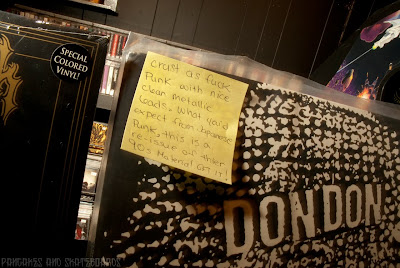 SPECIAL
COLORED
VINYL!
Crust as fuck
Punk with nice
clean metallic
leads. What you'd
expect from Japanese
Punks, this is a
re-issue of thier
90s Material GET it!
DONDON
PANCAKES AND SKATEBOARDS